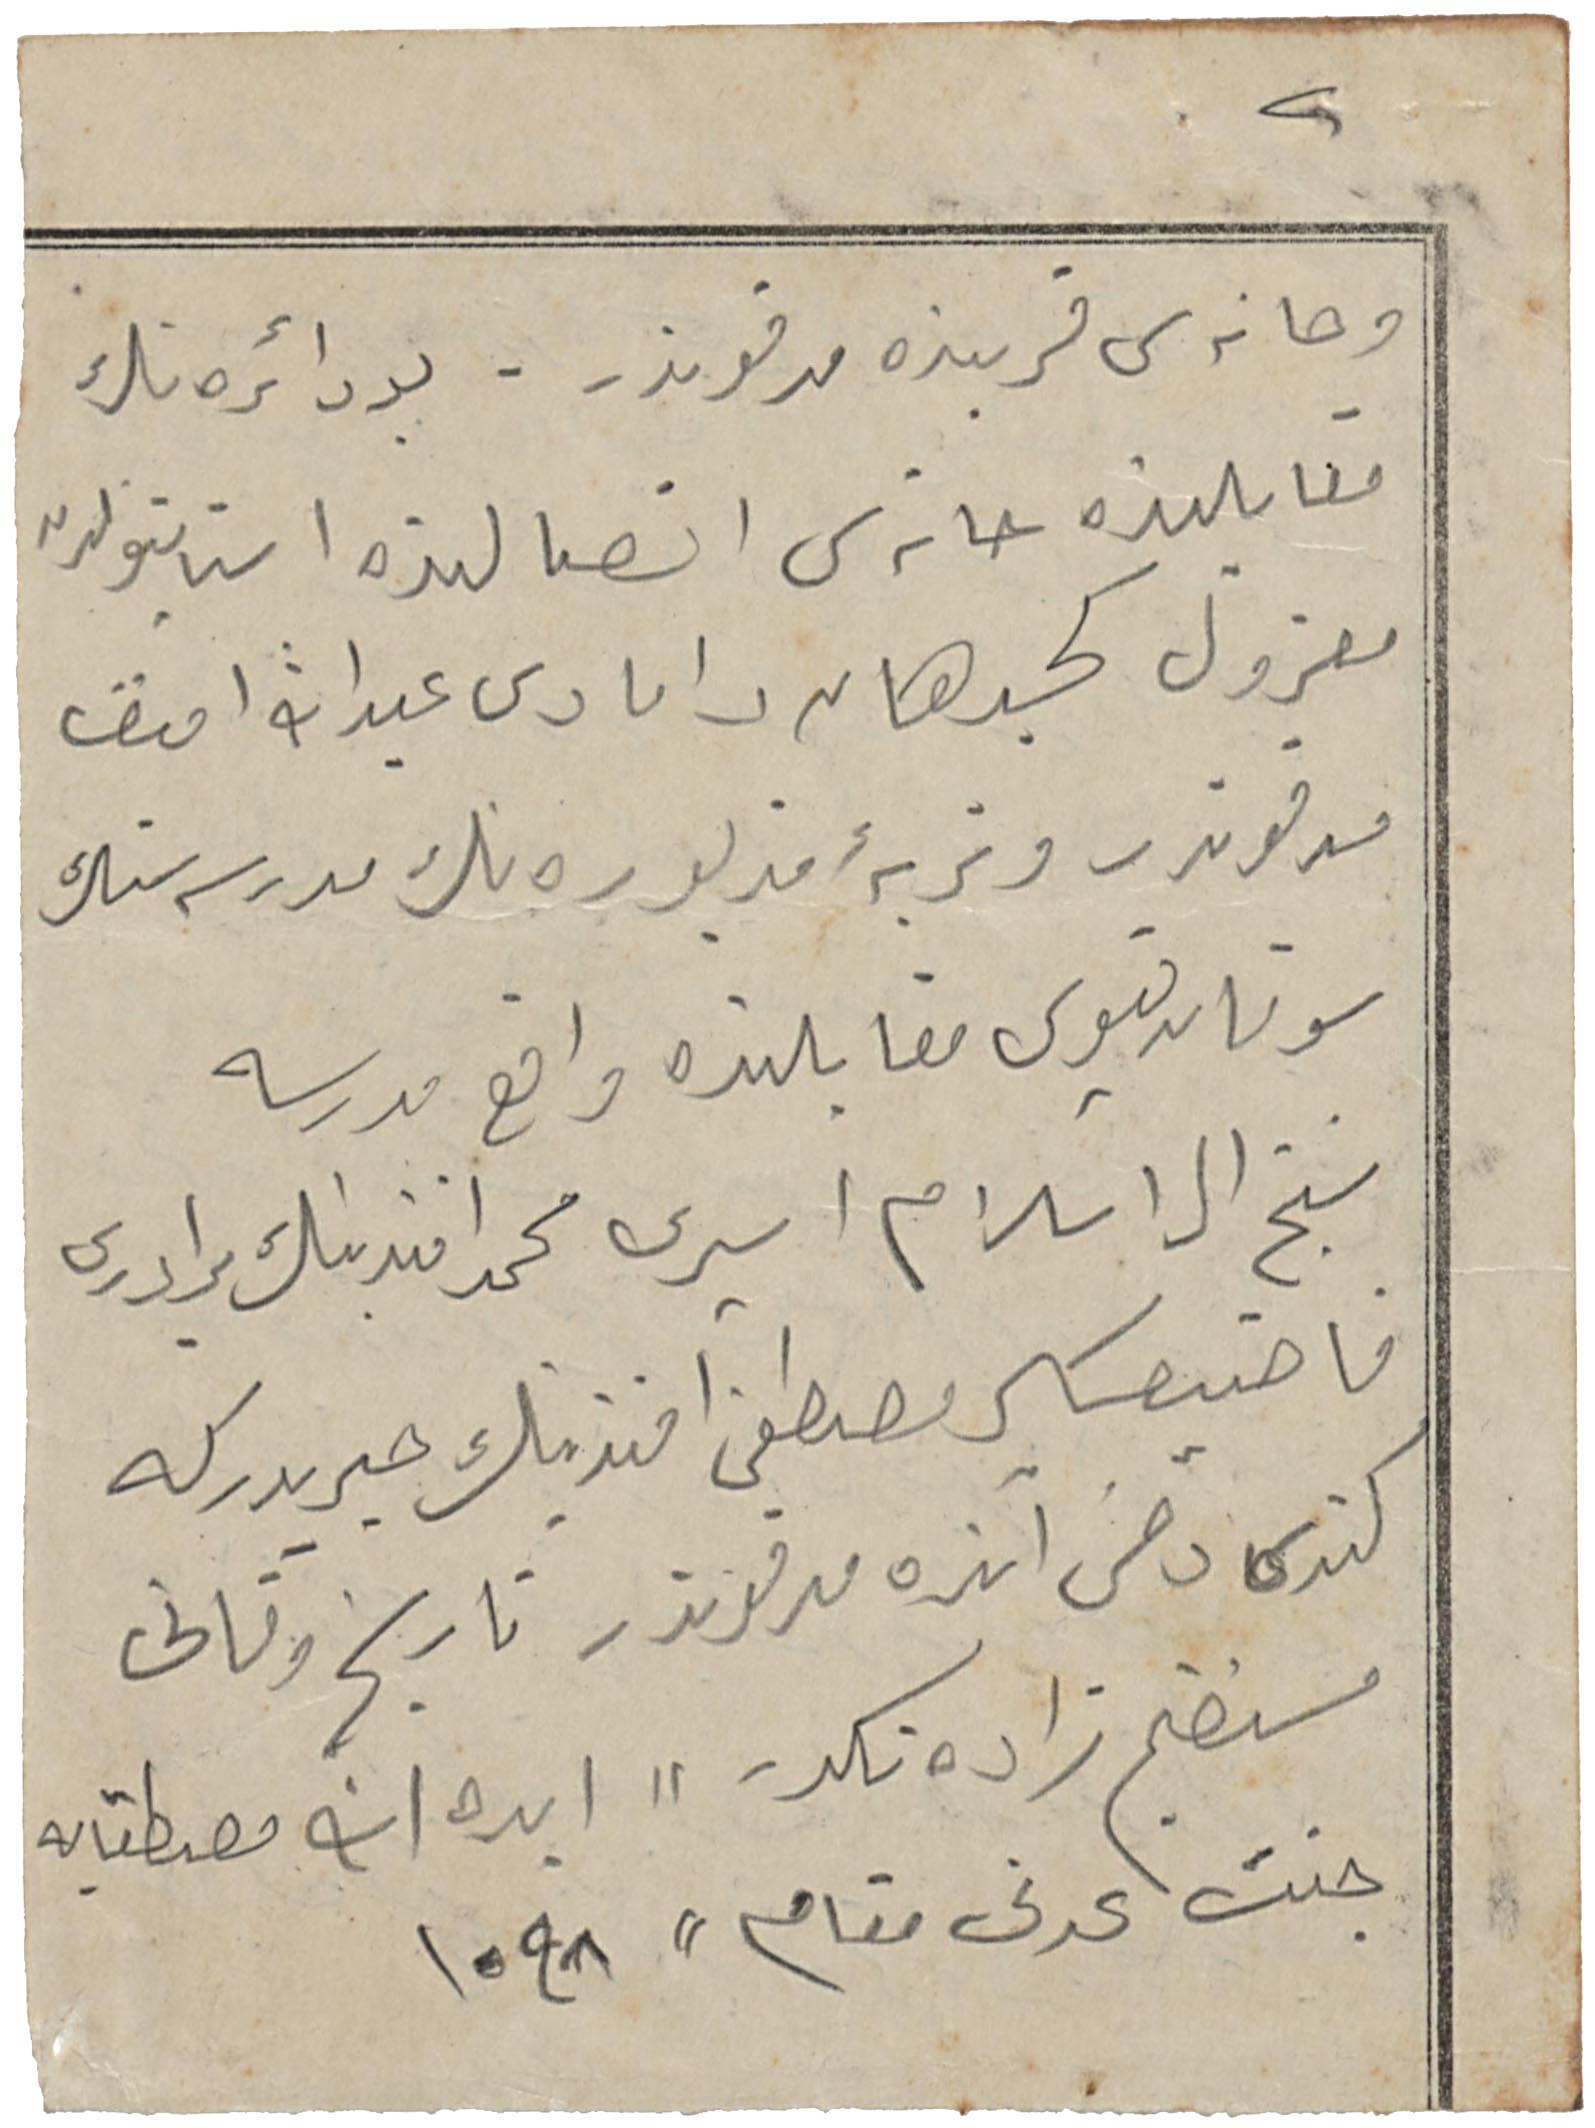 وخانه‌سی قربنده مدفوندر - بو دائره‌نك
مقابلنده خانه‌سی اتصالنده استانبولدن
معزول كجدهان دامادی عبدالله افندی
مدفوندر و تربهٔ مزبوره‌نك مدرسه‌سنك
سوقاق قپوسی مقابلنده واقع مدرسه
شیخ الاسلام اسیری محمد افندینك برادری
قاضیعسكر مصطفی افندینك خیریدركه
كندی دخی آنده مدفوندر تاریخ وفاتی
مستقیم زاده‌نكدر " ایده الله مصطفایه
جنت عدنی مقام " ١٠٩٨